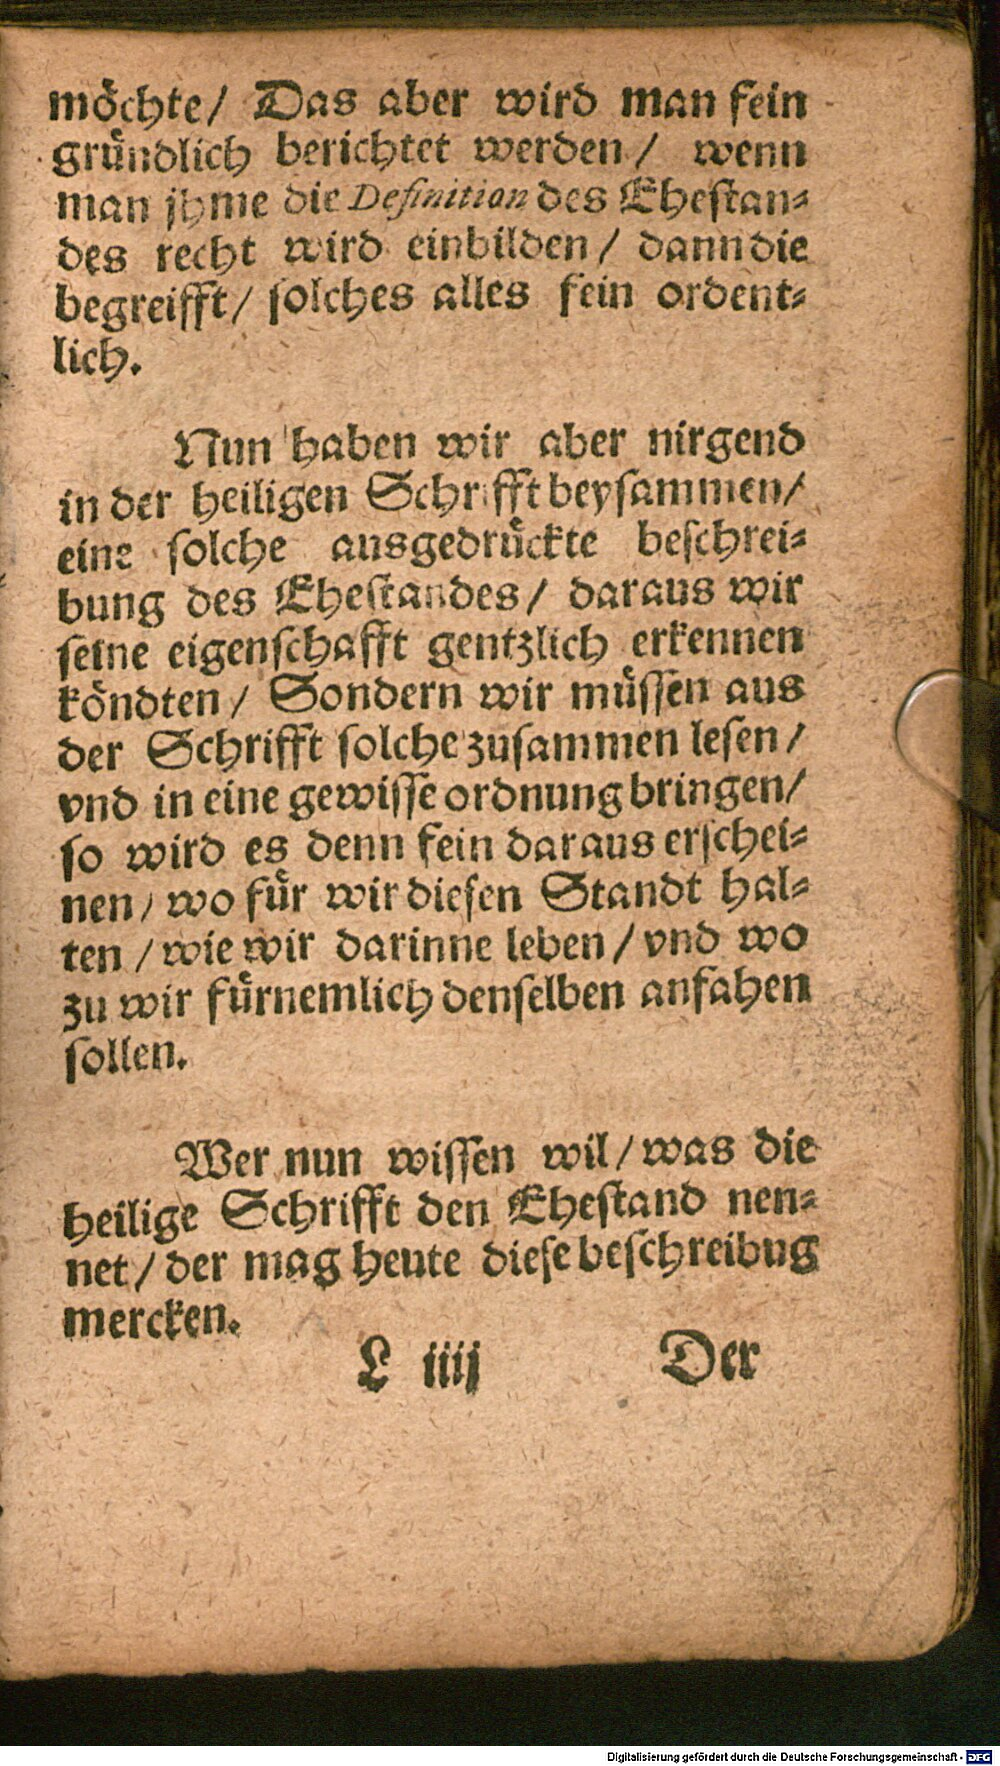 möchte/ Das aber wird man fein
gründlich berichtet werden/ wenn
man jhme die Definition des Ehestan⸗
des recht wird einbilden/ dann die
begreifft/ solches alles fein ordent⸗
lich.
Nun haben wir aber nirgend
in der heiligen Schrifft beysammen/
eine solche ausgedrückte beschrei⸗
bung des Ehestandes/ daraus wir
seine eigenschafft gentzlich erkennen
köndten/ Sondern wir müssen aus
der Schrifft solche zusammen lesen/
vnd in eine gewisse ordnung bringen/
so wird es denn fein daraus erschei⸗
nen/ wo für wir diesen Standt hal⸗
ten/ wie wir darinne leben/ vnd wo
zu wir fürnemlich denselben anfahen
sollen.
Wer nun wissen wil/ was die
heilige Schrifft den Ehestand nen⸗
net/ der mag heute diese beschreibug
mercken.
L iiij Der
Digitalisierung gefördert durch die Deutsche Forschungsgemeinschaft - DFG